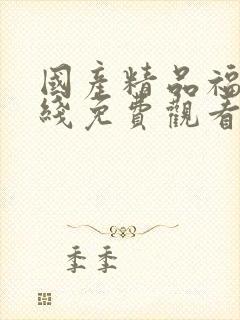 國產精品福
綫免費觀看
季季